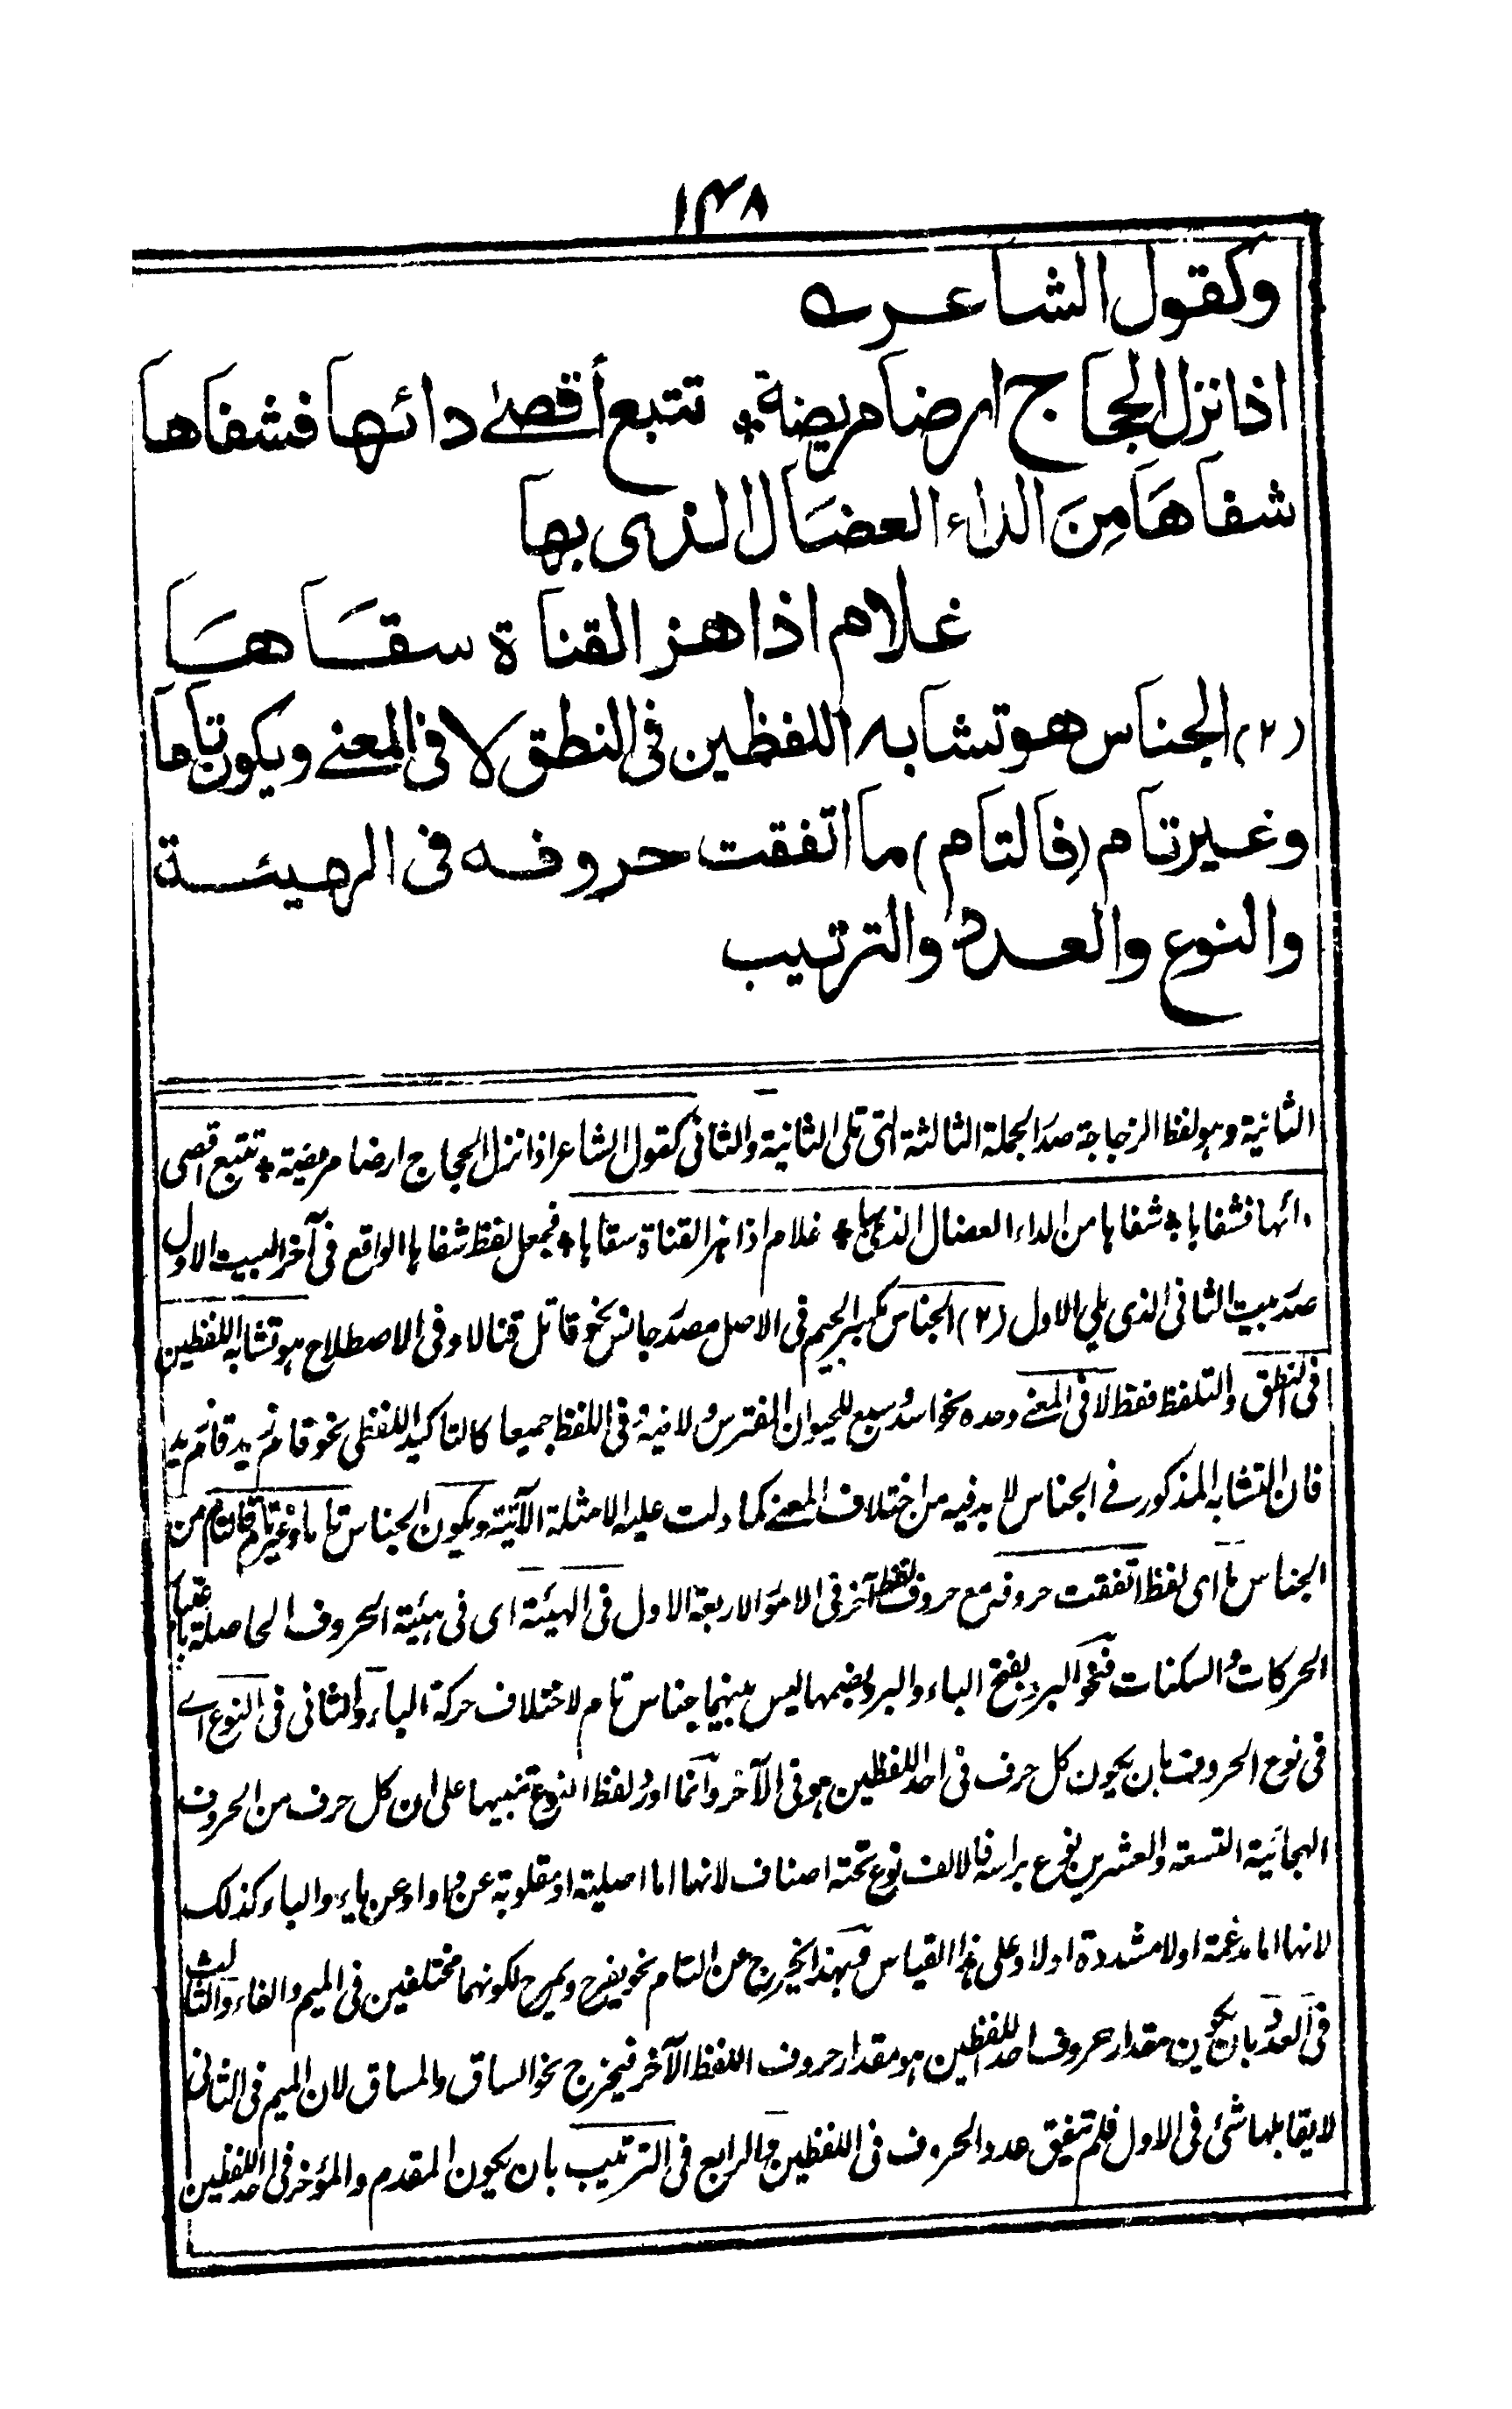 ۱۴۸
وكقول الشاعر ے
اذا نزل الحجاج ارضا مريضة * تتبع أقصى دائها فشفاها
شفاها مِنَ الداء العضَال الذى بها
غلام اذا هز القناة سقَاهَا
(۲) الجناس هو تشابه اللفظين فى النطق لا فى المعنے ويكون تاما
وغير تام (فالتام) ما اتفقت حروفه فى الهيئة
والنوع والعدد والترتيب
الثانية وهو لفظ الزجاجة صدر الجملة الثالثة التى تلى الثانية والثانى كقول الشاعر اذا نزل الحجاج ارضا مريضة * تتبع اقصى
دائها فشفاها * شفاها من الداء العضال الذى بها * غلام اذا هز القناة سقاها * فجعل لفظ شفاها الواقع فى آخر البيت الاول
صدر بيت الثانى الذى يلي الاول (۲) الجناس بكسر الجيم فى الاصل مصدر جانس نحو قاتل قتالا وفى الاصطلاح هو تشابه اللفظين
فى النطق والتلفظ فقط لا فى المعنے وحده نحو اسد وسبع للحيوان المفترس ولا فيه وفى اللفظ جميعا كالتاكيد اللفظى نحو قام زيد قام زيد
فان التشابه المذكور فے الجناس لا بد فيه من اختلاف المعنے كما دلت عليه الامثلة الآتية ويكون الجناس تاما وغير تام فالتام من
الجناس ما اى لفظ اتفقت حروفه مع حروف لفظ آخر فى الامور الاربعة الاول فى الهيئة اى فى هيئية الحروف الحاصلة باعتبار
الحركات والسكنات فنحو البرد بفتح الباء والبرد بضمها ليس بينهما جناس تام لاختلاف حركة الباء والثانى فى النوع اے
فى نوع الحروف بان يكون كل حرف فى احد اللفظين هو فى الآخر وانما اورد لفظ النوع تنبيها على ان كل حرف من الحروف
الهجائية التسعة والعشرين نوع براسه فالالف نوع تحته اصناف لانها اما اصلية او مقلوبة عن واو او عن ياء والباء كذلك
لانها اما مدغمة او لا مشددة او لا وعلى هذا القياس فبهذا يخرج عن التام نحو يفرح ويمرح لكونهما مختلفين فى الميم والفاء والثالث
فى العدد بان يكون مقدار حروف احد اللفظين هو مقدار حروف اللفظ الآخر فيخرج نحو الساق والمساق لان الميم فى الثانى
لا يقابلها شئ فى الاول فلم تتفق عدد الحروف فى اللفظين والرابع فى الترتيب بان يكون المقدم والمؤخر فى احد اللفظين